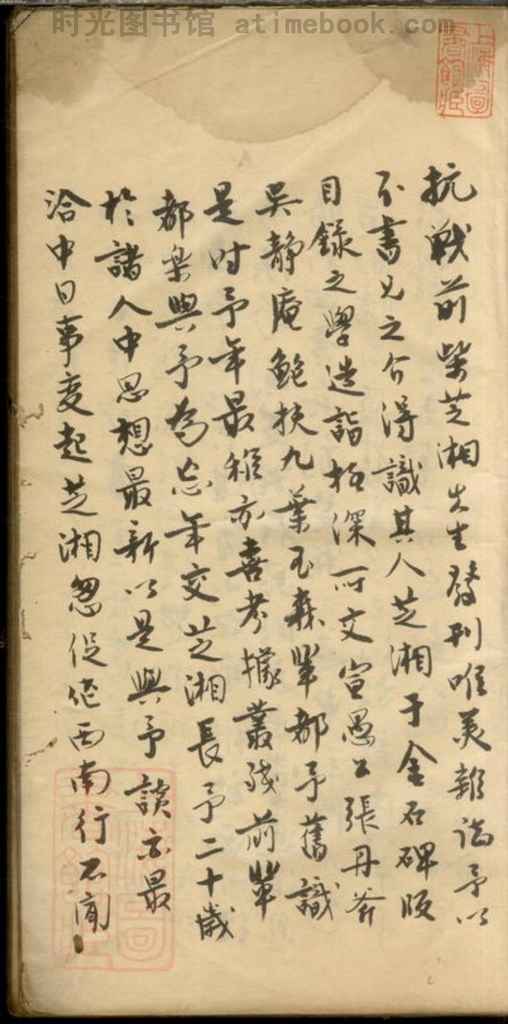 时光图书馆 atimebook.com
抗戰前柴芝湘先生發刊唯美雜誌予以
不書兄之介得識其人芝湘于金石碑版
目錄之學造詣極深而文宣愚公張丹斧
吳靜庵鮑扶九葉玉森輩都予舊識
是时予年最稚亦喜考據叢殘前輩
都樂與予為忘年交芝湘長予二十歲
於諸人中思想最新以是與予談亦最
洽中日事变起芝湘怱促作西南行不闻